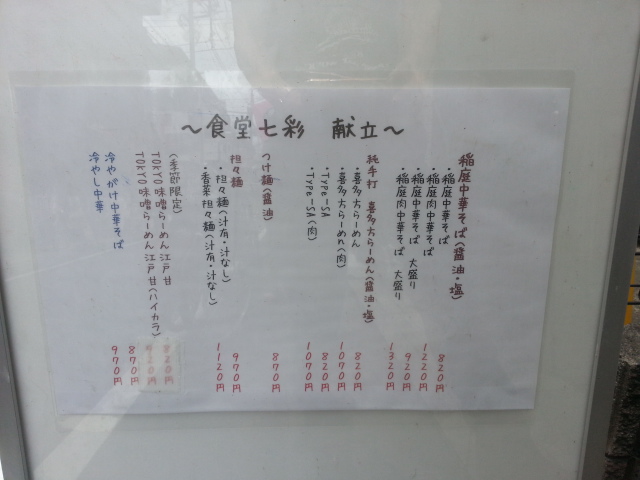 〜食堂七彩 献立〜
稲庭中華そば(醤油・塩)
・稲庭中華そば 820円
・稲庭肉中華そば 1220円
・稲庭中華そば 大盛り 920円
・稲庭肉中華そば 大盛り 1320円
純手打 喜多方らーめん(醤油・塩)
・喜多方らーめん 820円
・喜多方らーめん(肉) 1070円
・TYPE-SA 820円
・TYPE-SA(肉) 1070円
つけ麺(醤油) 870円
担々麺
・担々麺(汁有・汁なし) 970円
・香菜担々麺(汁有・汁なし) 1120円
(季節限定)
TOKYO味噌らーめん江戸甘 820円
TOKYO味噌らーめん江戸甘(ハイカラ)
冷やがけ中華そば 870円
冷やし中華 970円